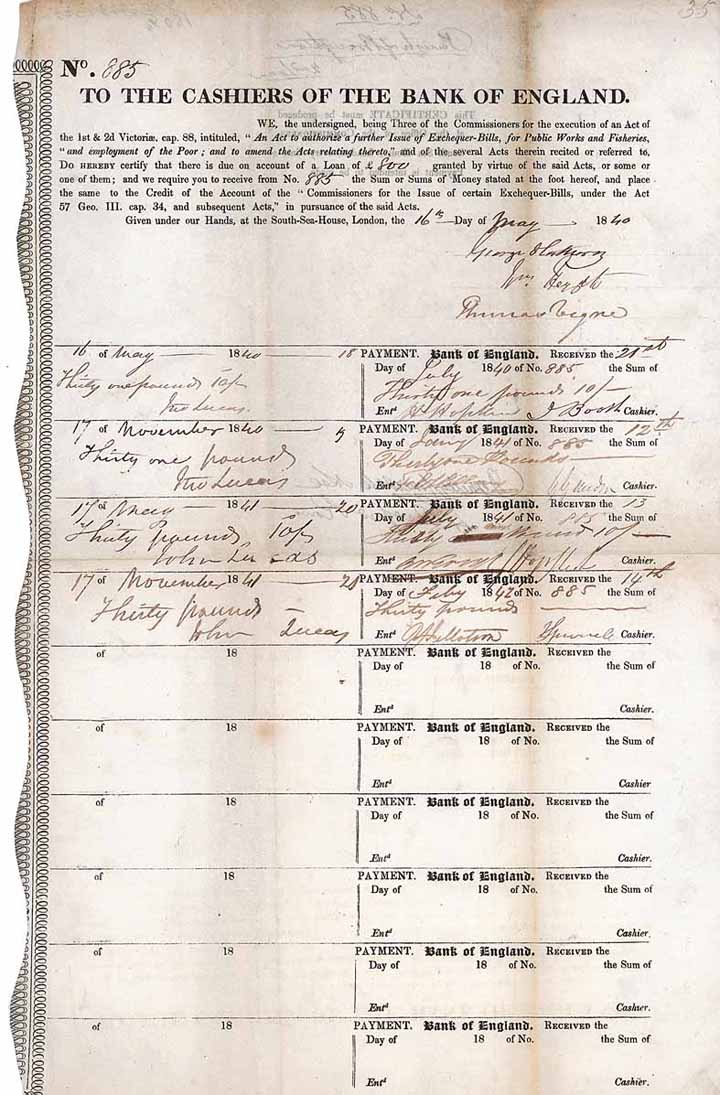 35
No. 885
TO THE CASHIERS OF THE BANK OF ENGLAND.
WE, the undersigned, being Three of the Commissioners for the execution of an Act of
the 1st & 2d Victoriæ. cap. 88, intituled, "An Act to authorize a further Issue of Exchequer-Bills, for Public Works and Fisheries,
"and employment of the Poor; and to amend the Acts relating thereto," and of the several Acts therein recited or referred to,
DO HEREBY certify that there is due on account of a Loan of £800 granted by virtue of the said Acts, or some or
one of them; and we require you to receive from No. 885 the Sum or Sums of Money stated at the foot hereof, and place
the same to the Credit of the Account of the "Commissioners for the Issue of certain Exchequer-Bills, under the Act
57 Geo. III. cap. 34, and subsequent Acts," in pursuance of the said Acts.
Given under our Hands, at the South-Sea-House, London, the 16th Day of May 1840
Thomas Vigne
16 of May 1840 18 PAYMENT. Bank of England. RECEIVED the 21st
Day of July 1840 of No. 885 the Sum of
Thirty one pounds 10/-
Thirty one pounds 10/-
Jno Lucas.
Entd J Booth Cashier.
17 of November 1840 PAYMENT. Bank of England. RECEIVED the 12th
Day of Jany 1841 of No. 885 the Sum of
Thirty one pounds
Thirty one Pounds
Jno Lucas
Entd Cashier.
17 of May 1841 20 PAYMENT. Bank of England. RECEIVED the 13
Day of July 1841 of No. 885 the Sum of
Thirty Pounds 10/-
Thirty 10/-
John Lucas
Entd Cashier.
17 of November 1841 PAYMENT. Bank of England. RECEIVED the 14th
Day of Feby 1842 of No. 885 the Sum of
Thirty pounds
Thirty pounds
John Lucas
Entd Cashier.
of 18 PAYMENT. Bank of England. RECEIVED the
Day of 18 of No. the Sum of
Entd Cashier.
of 18 PAYMENT. Bank of England. RECEIVED the
Day of 18 of No. the Sum of
Entd Cashier
of 18 PAYMENT. Bank of England. RECEIVED the
Day of 18 of No. the Sum of
Entd Cashier.
of 18 PAYMENT. Bank of England. RECEIVED the
Day of 18 of No. the Sum of
Entd Cashier.
of 18 PAYMENT. Bank of England. RECEIVED the
Day of 18 of No. the Sum of
Entd Cashier.
of 18 PAYMENT. Bank of England. RECEIVED the
Day of 18 of No. the Sum of
Entd Cashier.